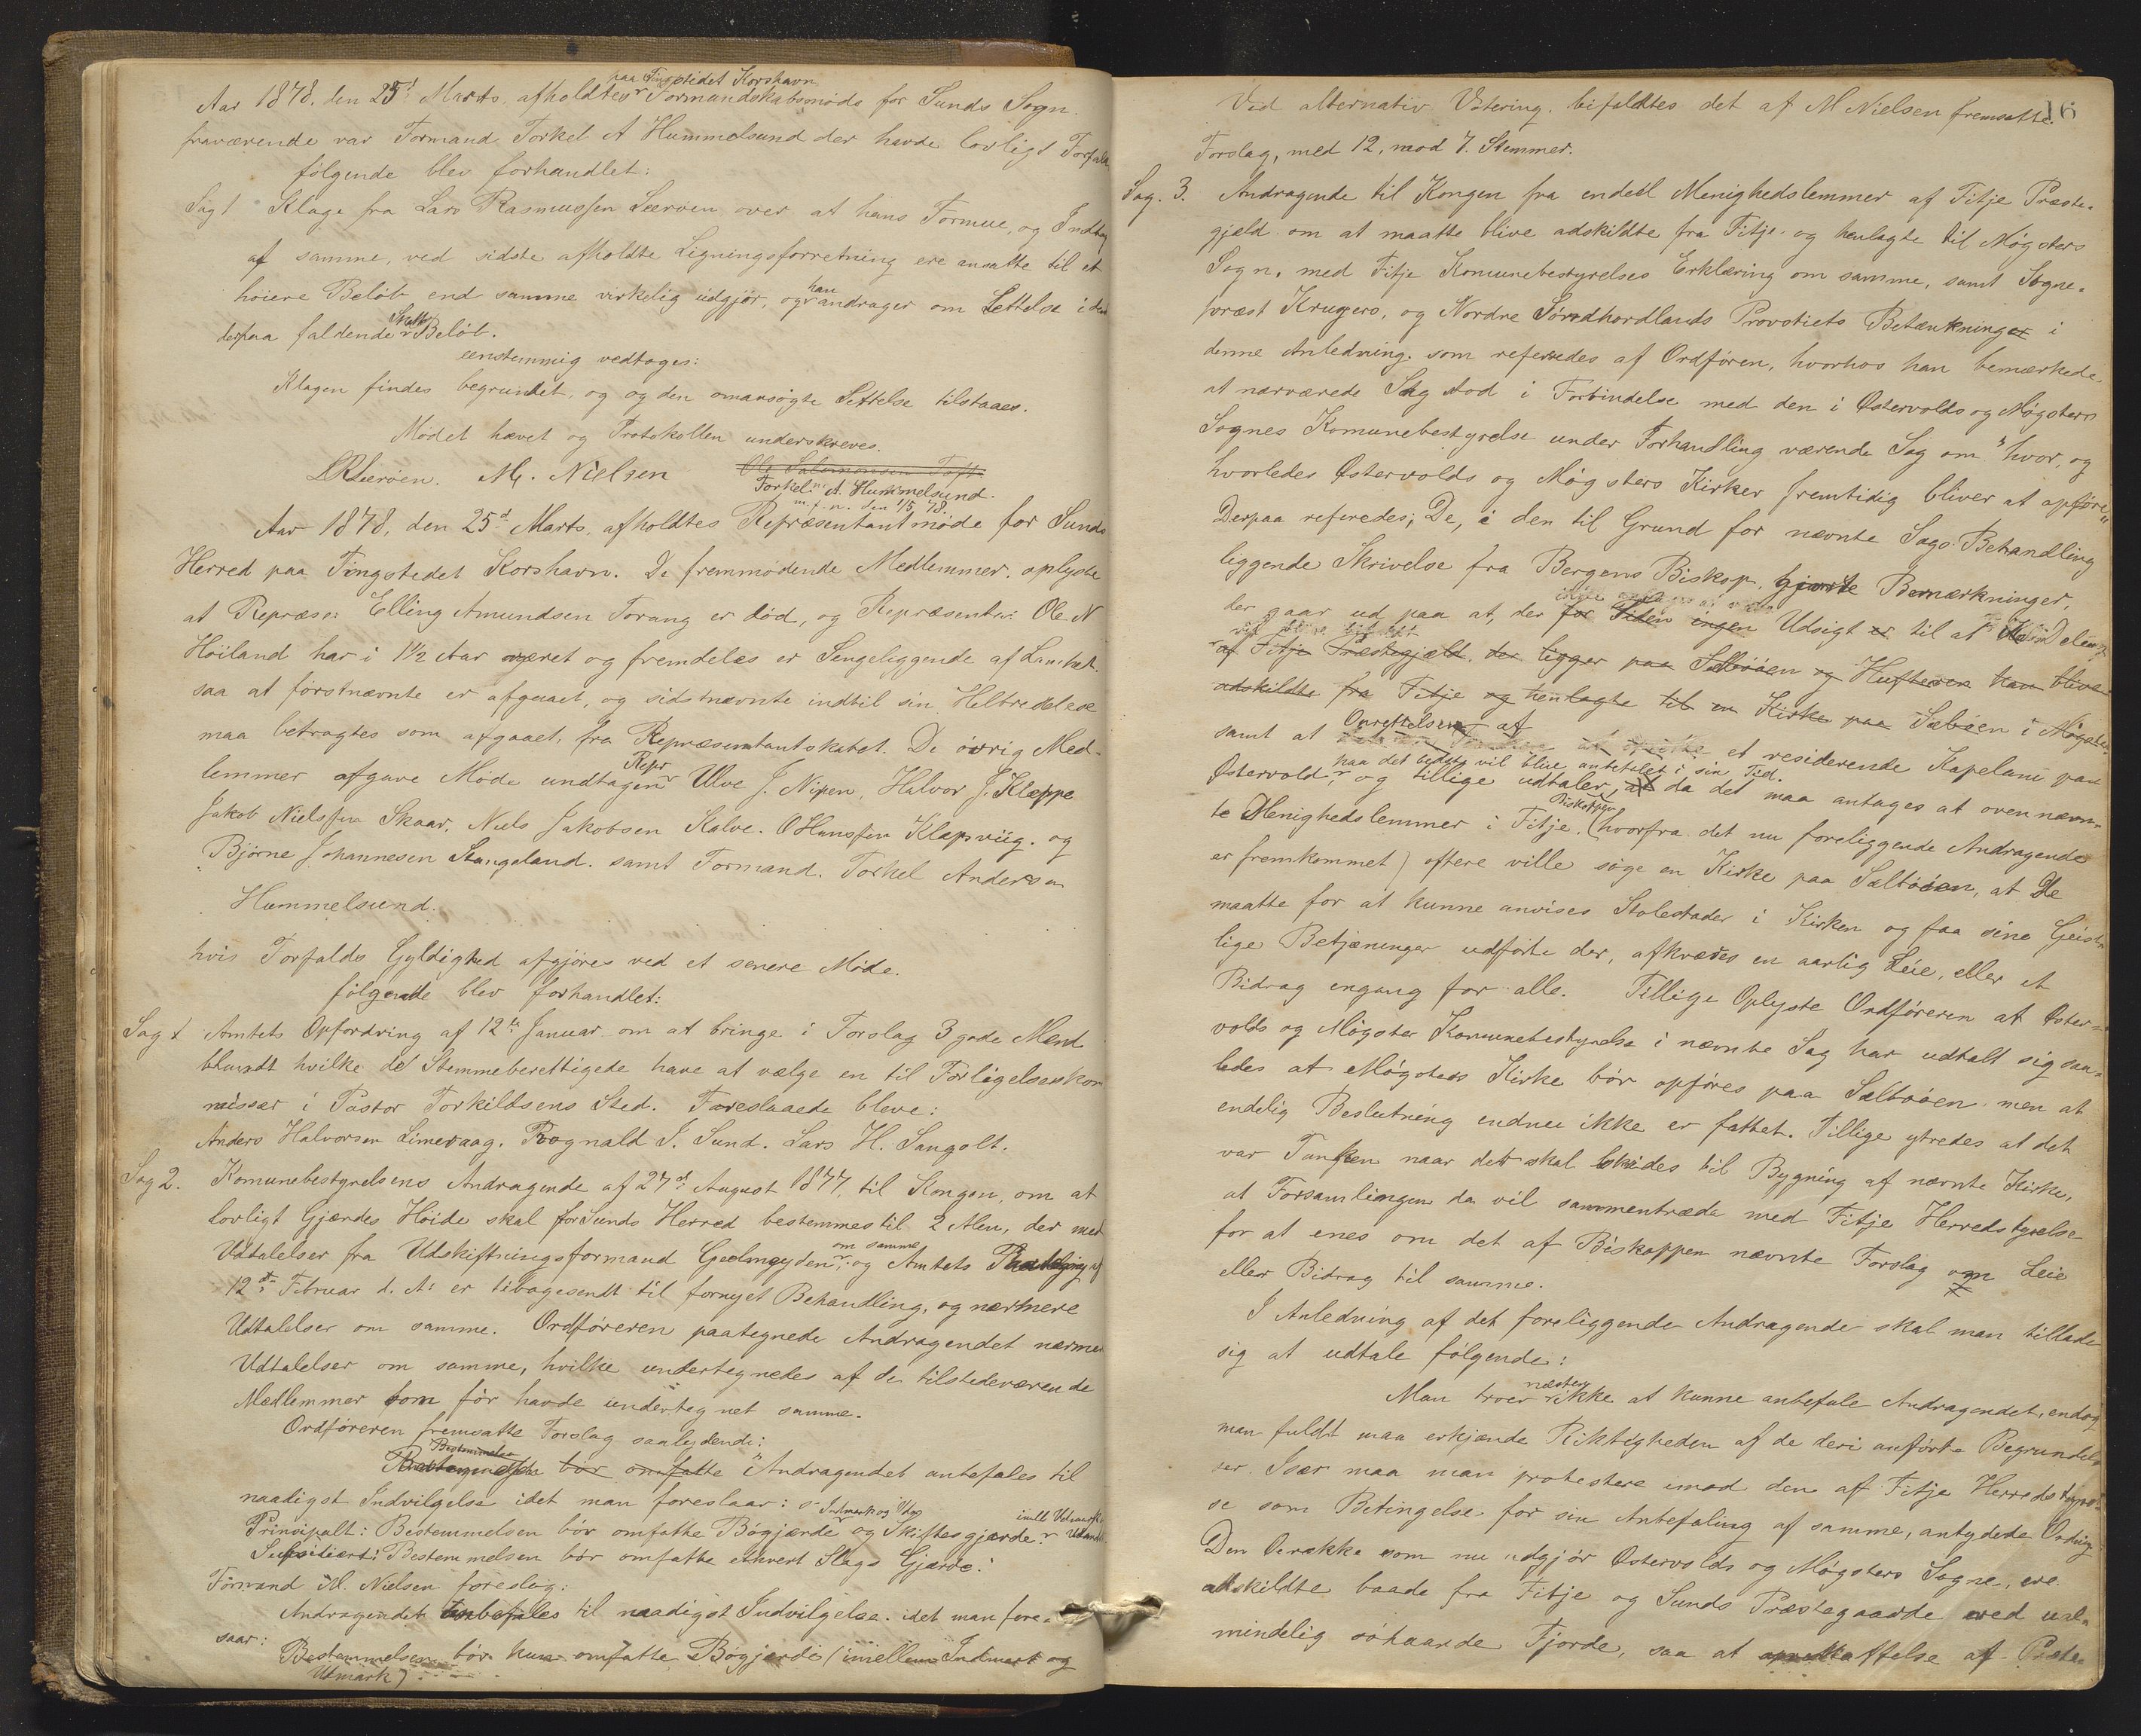 paa Tingstedet Korshavn
Aar 1878. den 25d Marts, afholdtes Formandskabsmøde for Sunds Sogn.
fraværende var Formand Torkel A Hummelsund der havde lovligt Forfald
følgende blev forhandlet:
Sag 1 Klage fra Lars Rasmussen Lerøen over at hans Formue, og Indtægt
af samme, ved sidste afholdte Ligningsforretning ere ansatte til et
høiere Beløb end samme virkelig udgjør, og han andrager om Lettelse i det
derpaa faldende Skatte Beløb.
eenstemmig vedtoges:
Klagen findes begrundet, og og den omansøgte Lettelse tilstaaes.
Mødet hævet og Protokollen underskreves.
LRLerøen. M. Nielsen Ole Salamonsen Toft
Torkel A. Hummelsund.
m. f. n. den 1/5 78.
Aar 1878, den 25d Marts, afholdtes Repræsentantmøde for Sunds
Herred paa Tingstedet Korshavn. De fremmødende Medlemmer, oplyste
at Repræs: Elling Amundsen Torang er død, og Repræsentn: Ole N
Høiland har i 1 1/2 Aar været og fremdeles er Sengeliggende af
saa at førstnævnte er afgaaet, og sidstnævnte indtil sin Helbredelse
maa betragtes som afgaaet, fra Repræsentantskabet. De øvrig Med-
lemmer afgave Møde undtagen Repr Ulve J. Nipen, Halvor J. Kleppe
Jakob Nielssen Skaar, Niels Jakobsen Kalve. O Hanssen Klepsviig. og
Bjørne Johannesen Stangeland. samt Formand. Torkel Andersen
Hummelsund.
hvis Forfalds Gyldighed afgjøres ved et senere Møde.
følgende blev forhandlet:
Sag 1 Amtets Opfordring af 12te Januar om at bringe i Forslag 3 gode Mænd
blandt hvilke de Stemmeberettigede have at vælge en til Forligelseskom
missær i Pastor Torkildsens Sted. Foreslaaede bleve:
Anders Halvorsen Limevaag. Rognald J. Sund. Lars H. Sangolt.
Sag 2. Komunebestyrelsens Andragende af 27d August 1877, til Kongen, om at
lovligt Gjærdes Høide skal for Sunds Herred bestemmes til 2 Alen, der med
Udtalelser fra Udskiftningsformand Geelmeyden om samme, og Amtets Paategning af
12d Februar d. A: er tilbagesendt til fornyet Behandling, og nærmere
Udtalelser om samme. Ordføreren paategnede Andragendet nærmere
Udtalelser om samme, hvilke undertegnedes af de tilstedeværende
Medlemmer som før havde undertegnet samme.
Ordføreren fremsatte Forslag saalydende:
Bestemmelse bør omfatte "Andragendet anbefales til
naadigst Indvilgelse idet man foreslaar:
Prinsipalt: Bestemmelsen bør omfatte Bøgjærde og Skiftesgjærde.
Subsidiært: Bestemmelsen bør omfatte ethvert Slags Gjærde."
Formand M. Nielsen foreslog:
Andragendet anbefales til naadigst Indvilgelse. idet man fore-
slaar:
Bestemmelsen bør kun omfatte Bøgjerde (imellem Indmark og
Udmark)
16
Ved alternativ Votering, bifaldtes det af M Nielsen fremsatte
Forslag, med 12, mod 7. Stemmer.
Sag. 3. Andragende til Kongen fra endeel Menighedslemmer af Fitje Præste-
gjæld om at maatte blive adskildte fra Fitje og henlagte til Møgsters
Sogn, med Fitje Komunebestyrelses Erklæring om samme, samt Sogne-
præst Krugers, og Nordre Søndhordlands Provstiets Betænkninger i
denne Anledning. som refereredes af Ordføren, hvorhos han bemærkede,
at nærværede Sag stod i Forbindelse med den i Østervolds og Møgsters
Sognes Komunebestyrelse under Forhandling værende Sag om "hvor, og
hvorledes Østervolds og Møgsters Kirker fremtidig bliver at opføre"
Derpaa referedes; De, i den til Grund for nævnte Sags Behandling
liggende Skrivelse fra Bergens Biskop, gjorte Bemærkninger,
der gaar ud paa at, der for Tiden ingen Udsigt er til at den Deel
af Fitje Præstegjæld, der ligger paa Selbøen og Huftaren kan blive
adskildte fra Fitje og henlagte til en Kirke paa Sælbøen i Møgster
samt at Oprettelsen af et residerende Kapelani paa
paa det bedste vil blive anbefalet i sin Tid.
Østervold, og tillige udtaler, at da det maa antages at ovennævn-
te Menighedslemmer i Fitje, Biskoppen (hvorfra det nu foreliggende Andragende
er fremkommet) oftere ville søge en Kirke paa Sælbøen, at De
maatte for at kunne anvises Stolestader i Kirken og faa sine Geist-
lige Betjæninger udførte der, afkræves en aarlig Leie, eller et
Bidrag engang for alle. Tillige Oplyste Ordføreren at Øster-
volds og Møgster Komunebestyrelse i nævnte Sag har udtalt sig saa-
ledes at Møgsters Kirke bør opføres paa Sælbøen men at
endelig Beslutning endnu ikke er fattet. Tillige ytredes at det
var Tanken naar det skal skrides til Bygning af nævnte Kirke,
at Forsamlingen da vil sammentræde med Fitje Herredstyrelse
for at enes om det af Biskoppen nævnte Forslag om Leie
eller Bidrag til samme.
I Anledning af det foreliggende Andragende skal man tillade
sig at udtale følgende:
Man troer næsten ikke at kunne anbefale Andragendet, endog
man fuldt maa erkjænde Riktigheden af de deri anførte Begrundel-
ser. Især maa man protestere imod den af Fitje Herredstyrel-
se som Betingelse for sin Anbefaling af samme, antydede Ordning
Den Ørække som nu udgjør Østervolds og Møgsters Sogne, ere
adskildte baade fra Fitje og Sunds Præstegaarde ved ual-
mindelig söhaarde Fjorde, saa at af Præste-